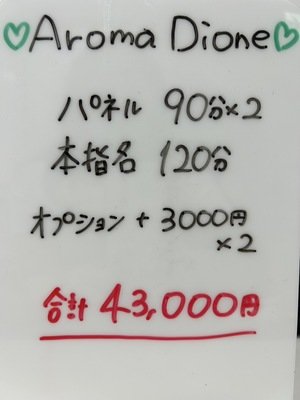 ♡Aroma Dione♡
パネル 90分×2
本指名 120分
オプション + 3000円
×2
合計 43,000円